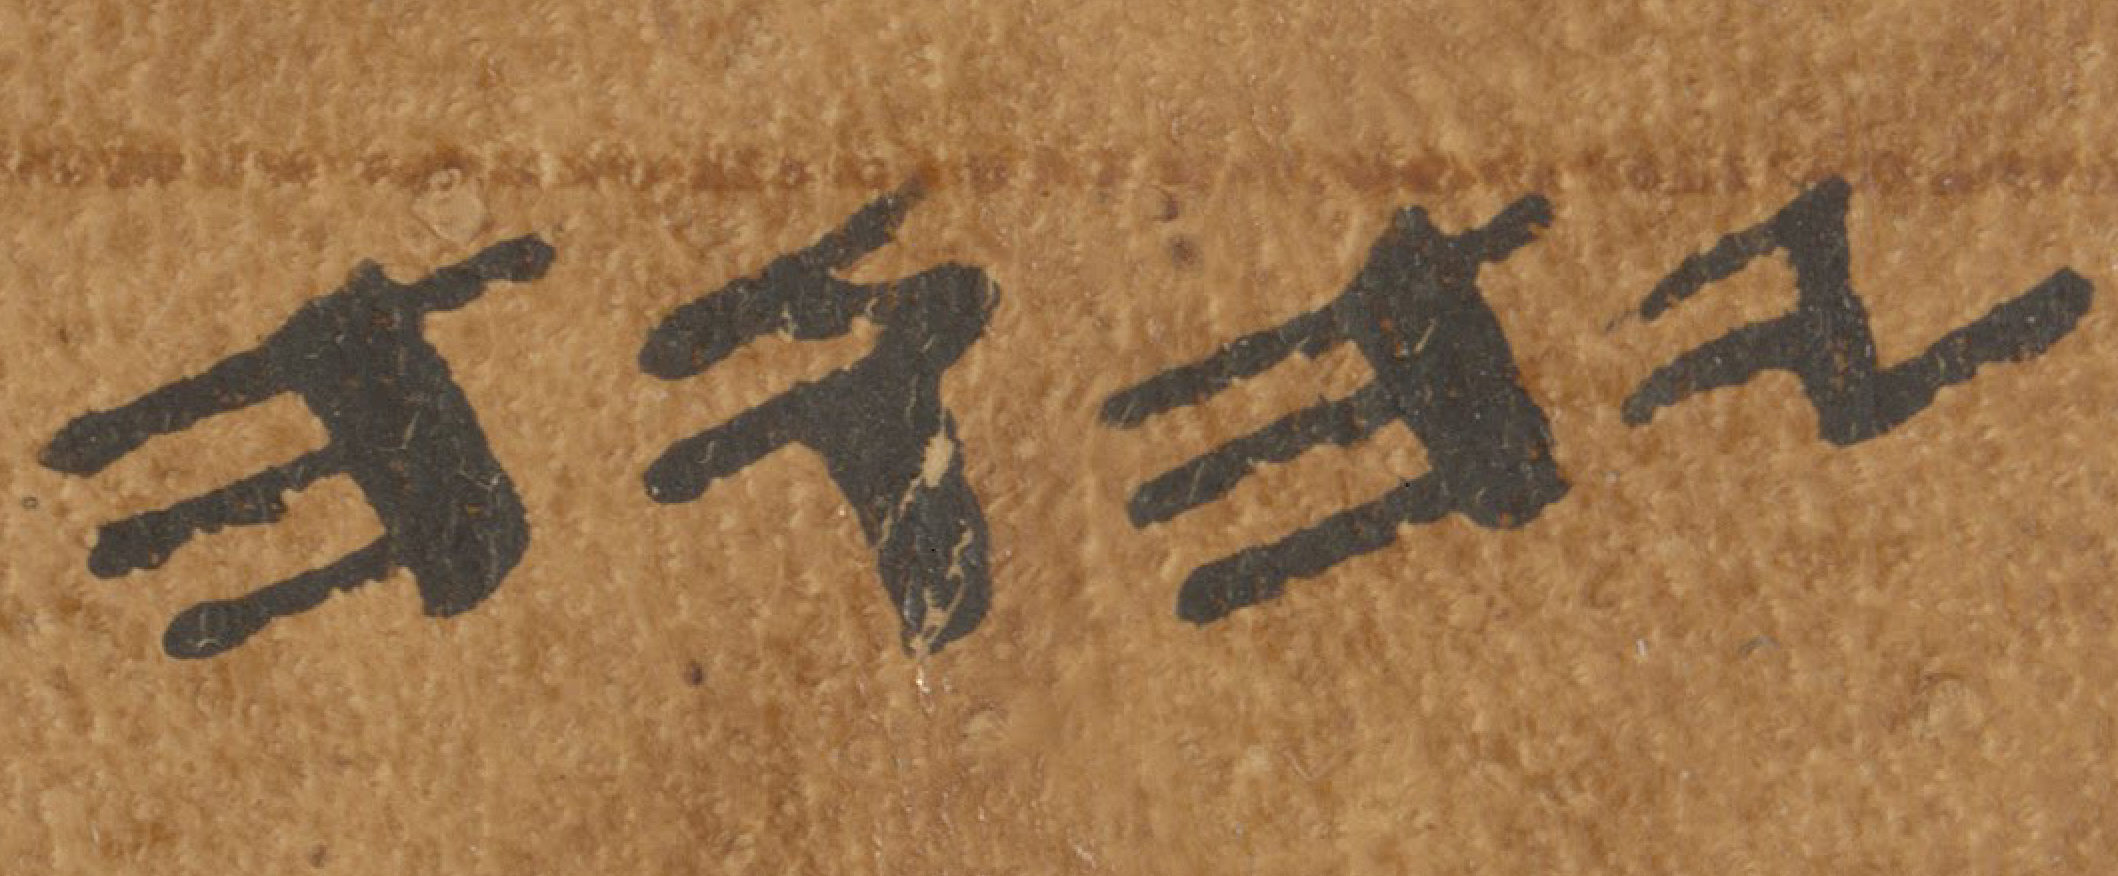 𐤉𐤄𐤅𐤄